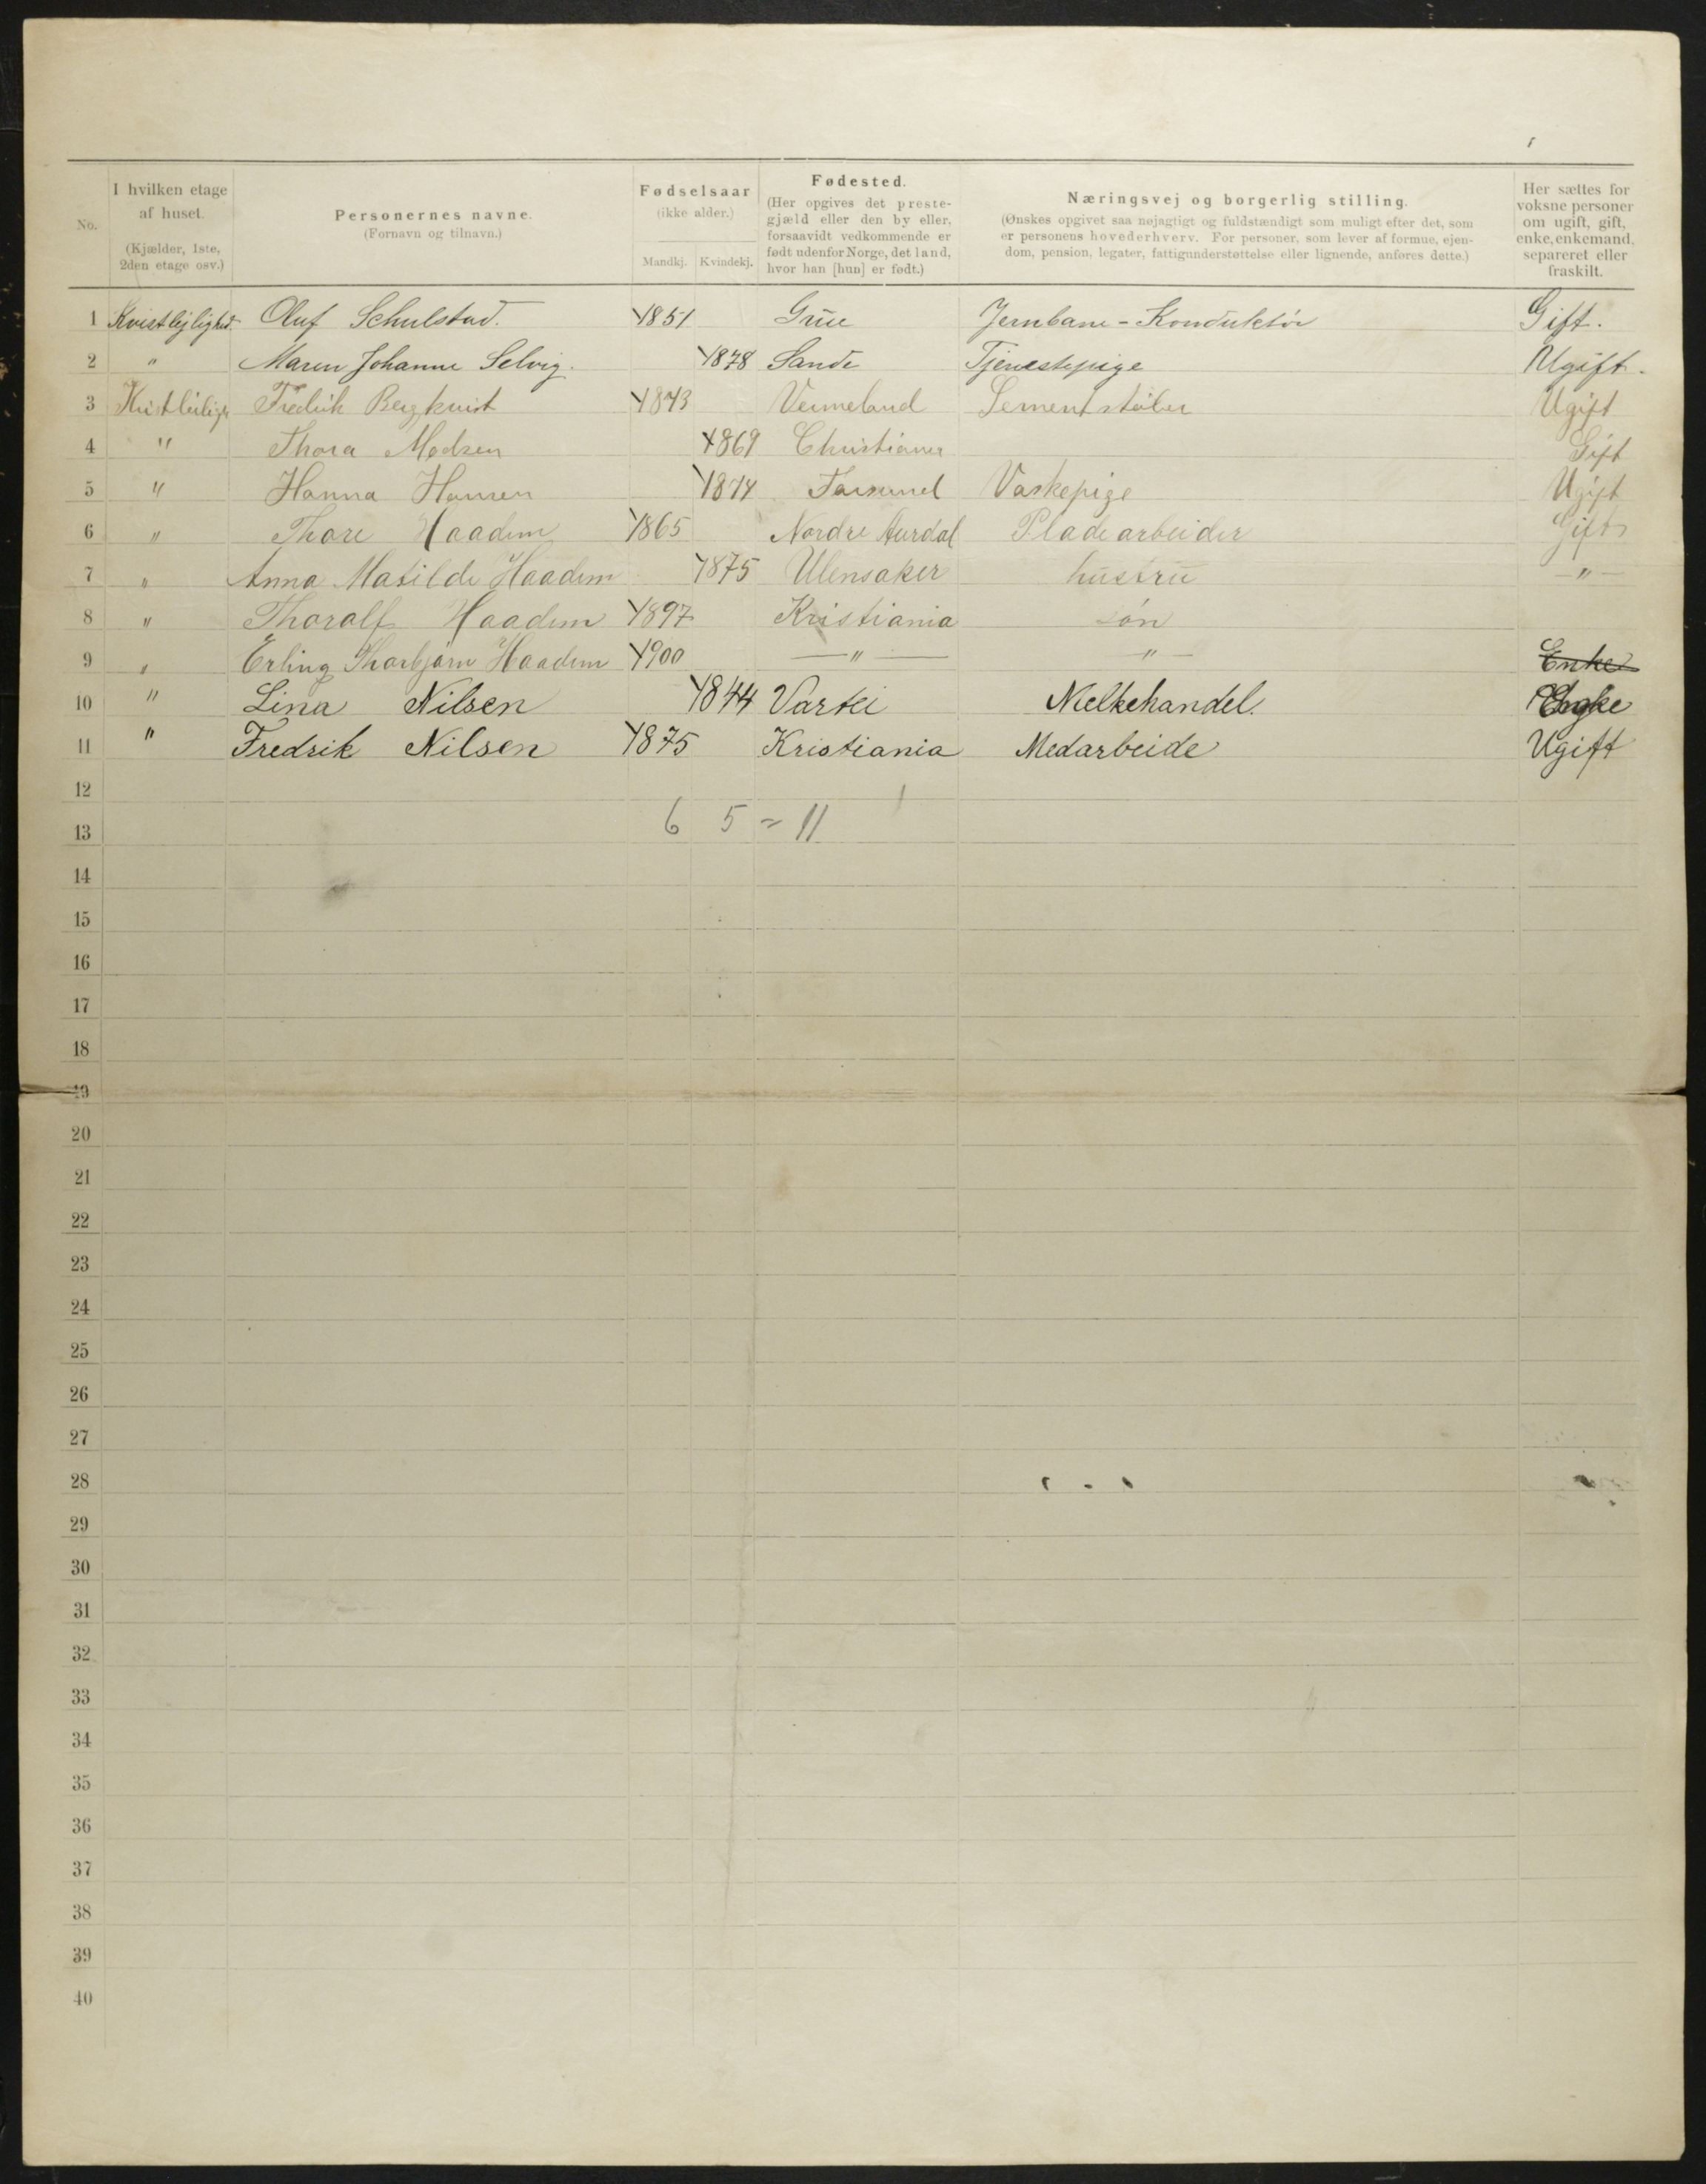 No. | I hvilken etage af huset. (Kjælder, 1ste, 2den etage osv.) | Personernes navne. (Fornavn og tilnavn.) | Fødselsaar (ikke alder.) Mandkj. Kvindekj. | Fødested. (Her opgives det prestegjæld eller den by eller, forsaavidt vedkommende er født udenfor Norge, det land, hvor han [hun] er født.) | Næringsvej og borgerlig stilling. (Ønskes opgivet saa nøjagtigt og fuldstændigt som muligt efter det, som er personens hovederhverv. For personer, som lever af formue, ejendom, pension, legater, fattigunderstøttelse eller lignende, anføres dette.) | Her sættes for voksne personer om ugift, gift, enke, enkemand, separeret eller fraskilt.
1 Kvistlejlighed. Oluf Schulstad. 1851 Grue Jernbane-Konduktör Gift.
2 " Maren Johanne Selvig. 1878 Sande Tjenestepige Ugift.
3 Fredrik Bergkvist 1843 Vermeland Sementstøber Ugift
4 " Thora Madsen 1869 Christiania Gift
5 " Hanna Hansen 1874 Farsund Vaskepige Ugift
6 " Thore Haadem 1865 Nordre Aurdal Pladearbeider Gift
7 " Anna Matilde Haadem 1875 Ulensaker hustru —"—
8 " Thoralf Haadem 1897 Kristiania søn
9 " Erling Thorbjørn Haadem 1900 —"— —"— Enke
10 " Lina Nilsen 1844 Melkehandel. Engke
11 " Fredrik Nilsen 1875 Kristiania Medarbeide Ugift
12
13 6 5 = 11
14
15
16
17
18
19
20
21
22
23
24
25
26
27
28
29
30
31
32
33
34
35
36
37
38
39
40